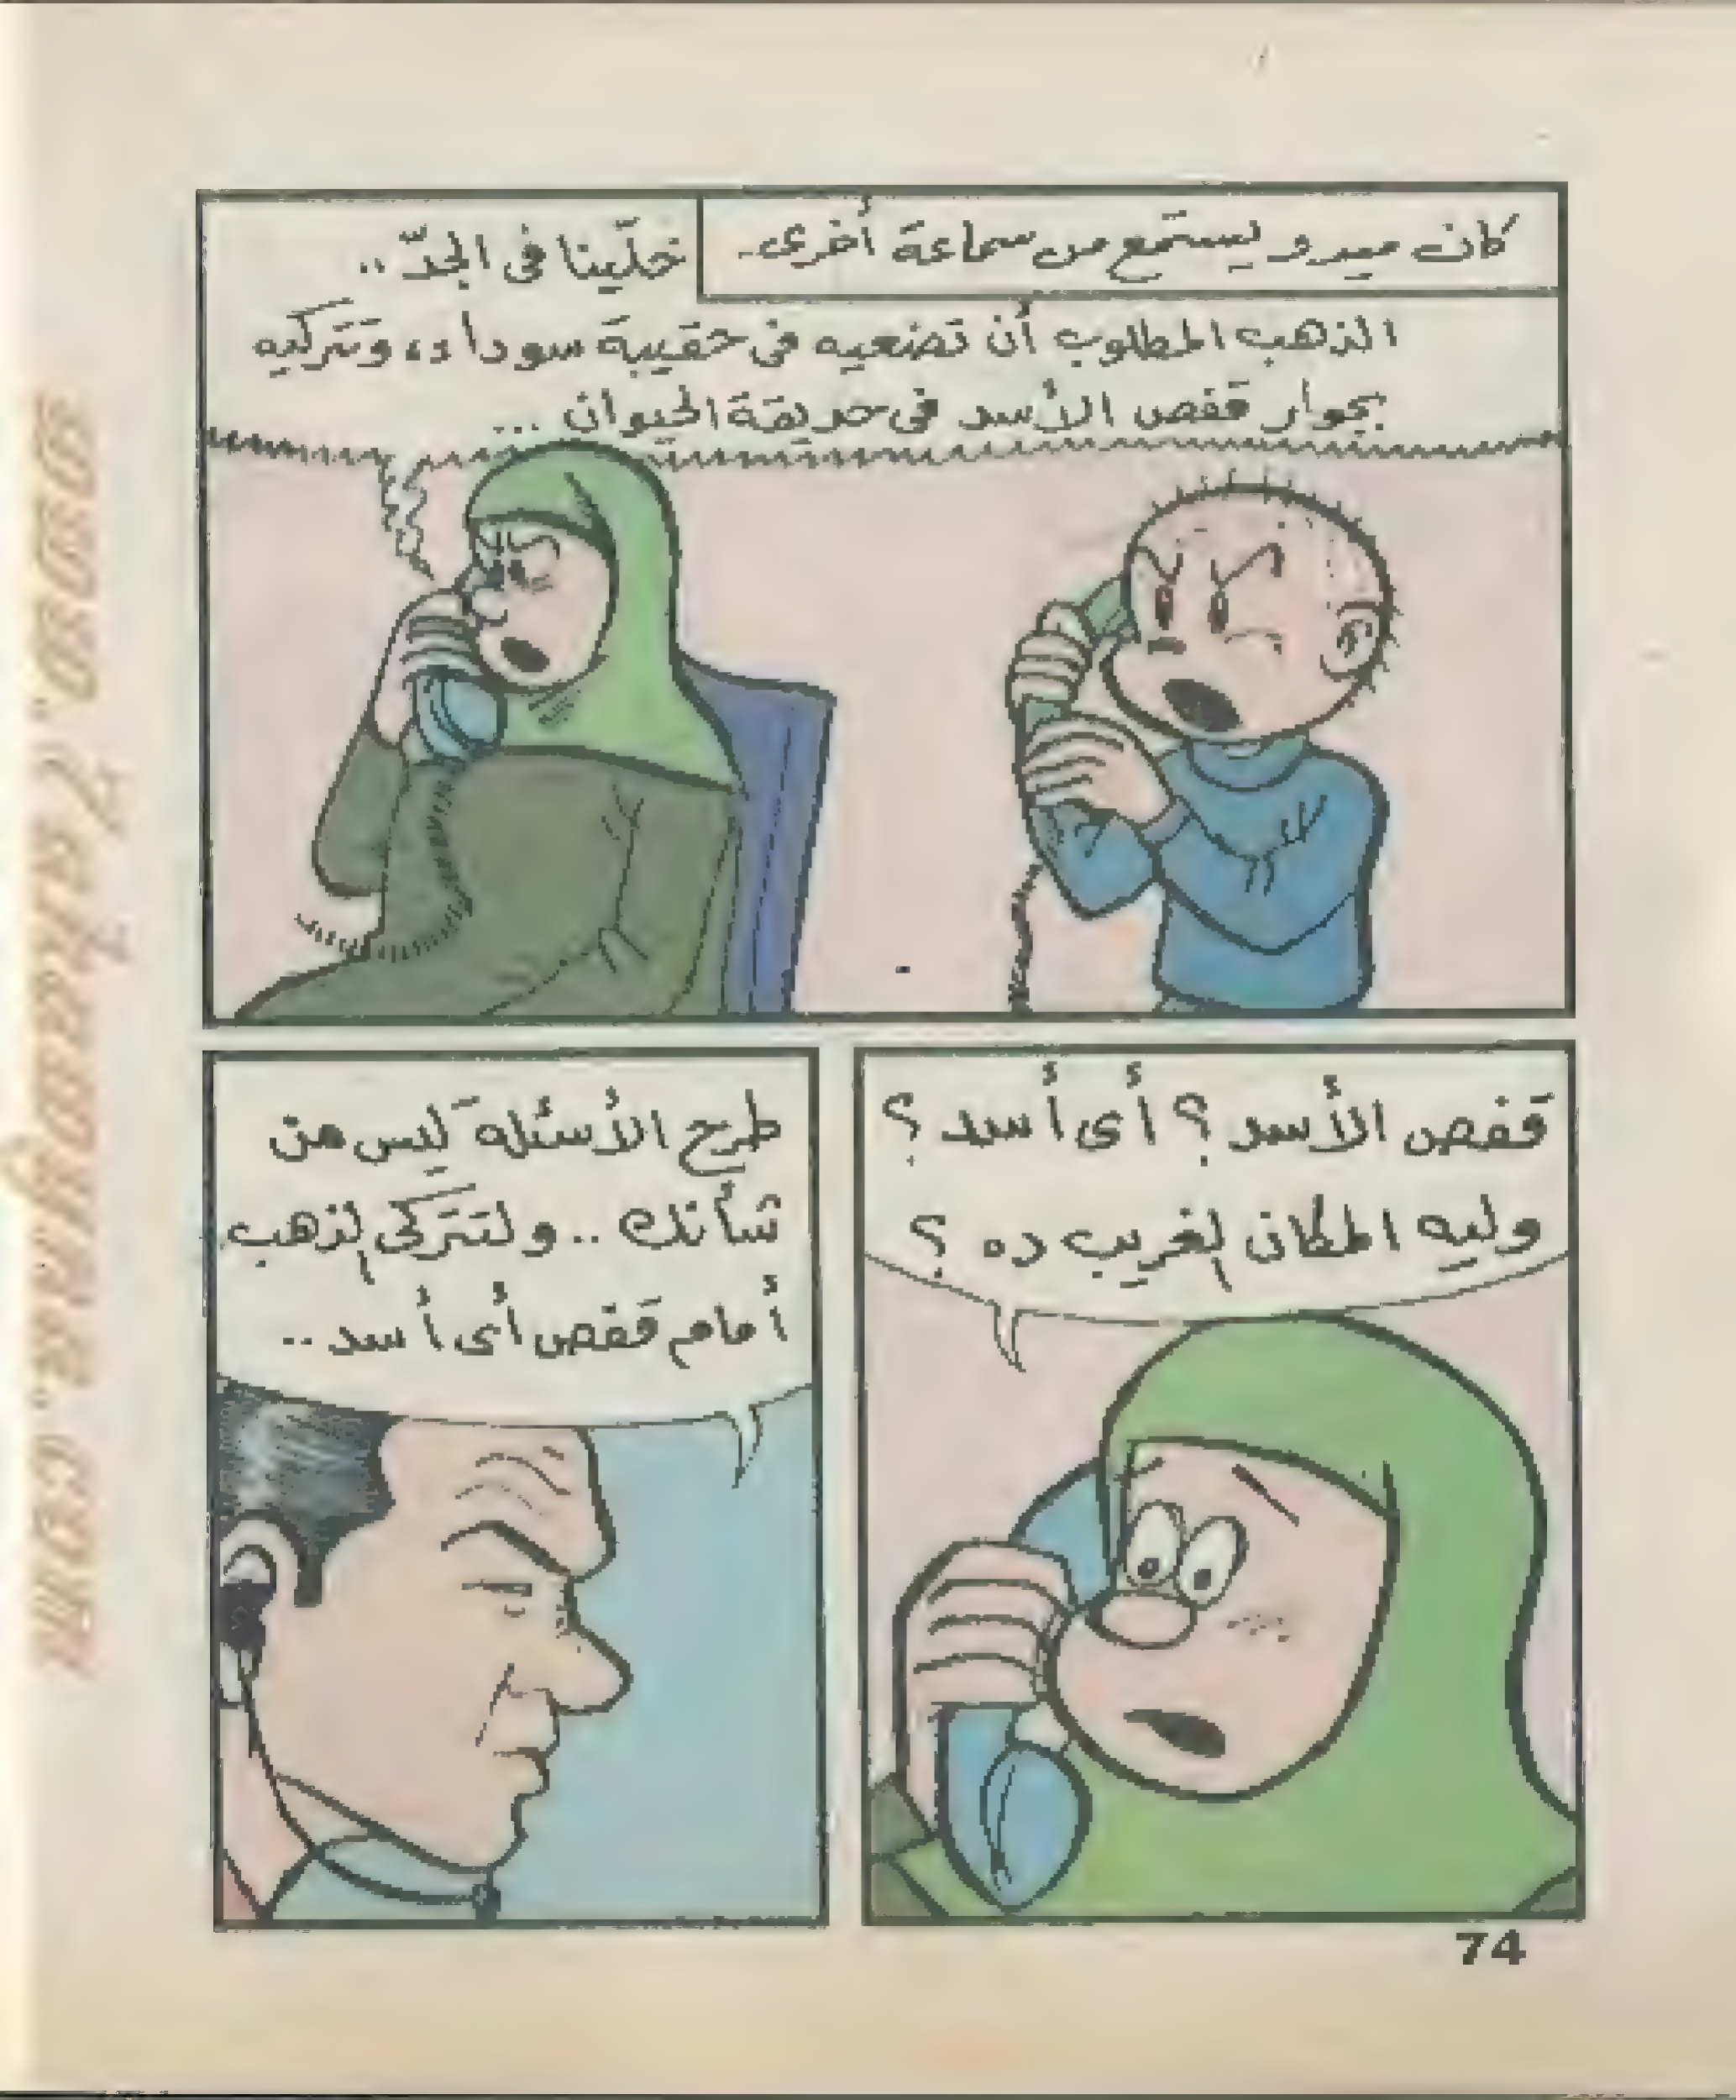 كان ميدو يستمع من سماعة أخرى..
خلّينا فى الجدّ..
الذهب المطلوب أن تضعيه فى حقيبة سوداء، وَتتركيه
بجوار قفص الأسد فى حديقة الحيوان ...
قفص الأسد؟ أى أسد؟
وليه المكان الغريب ده؟
طرح الأسئلة ليس من
شأنك .. ولتتركى الذهب
أمام قفص أى أسد..
74